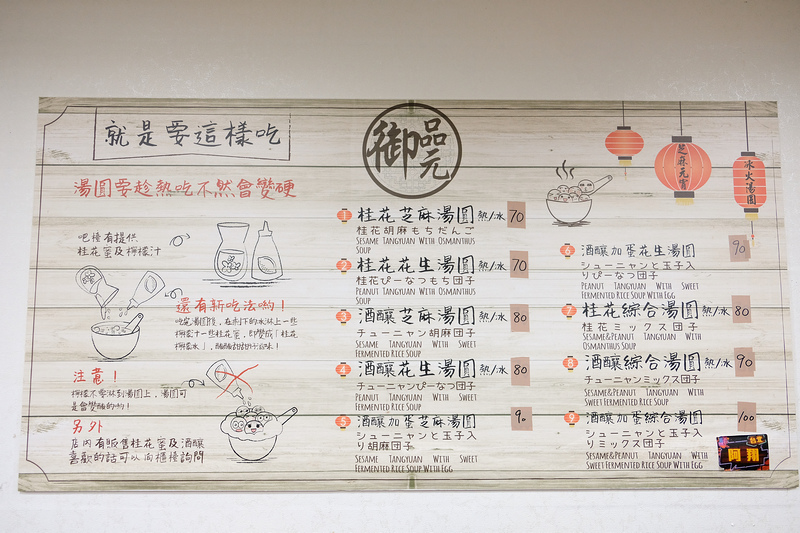 就是要這樣吃
湯圓要趁熱吃不然會變硬
吧檯有提供
桂花蜜及檸檬汁
還有新吃法喲！
注意！
檸檬不要淋到湯圓上，湯圓可
是會變酸的喲！
另外
店內有販售桂花蜜及酒釀
喜歡的話可以向櫃檯詢問
御品元
1 桂花芝麻湯圓 熱/冰 70
桂花胡麻もちだんご
SESAME TANGYUAN WITH OSMANTHUS
SOUP
2 桂花花生湯圓 熱/冰 70
桂花ぴーなつもち団子
PEANUT TANGYUAN WITH OSMANTHUS
SOUP
3 酒釀芝麻湯圓 熱/冰 80
チューニャン胡麻団子
SESAME TANGYUAN WITH SWEET
FERMENTED RICE SOUP
4 酒釀花生湯圓 熱/冰 80
チューニャンぴーなつ団子
PEANUT TANGYUAN WITH SWEET
FERMENTED RICE SOUP
5 酒釀加蛋芝麻湯圓 90
シューニャンと玉子入
り胡麻団子
SESAME TANGYUAN WITH SWEET
FERMENTED RICE SOUP WITH EGG
芝麻元宵
冰火湯圓
6 酒釀加蛋花生湯圓 90
シューニャンと玉子入
りぴーなつ団子
PEANUT TANGYUAN WITH SWEET
FERMENTED RICE SOUP WITH EGG
7 桂花綜合湯圓 熱/冰 80
桂花ミックス団子
SESAME&PEANUT TANGYUAN WITH
OSMANTHUS SOUP
8 酒釀綜合湯圓 熱/冰 90
チューニャンミックス団子
SESAME&PEANUT TANGYUAN WITH
SWEET FERMENTED RICE SOUP
9 酒釀加蛋綜合湯圓 100
シューニャンと玉子入
りミックス団子
SESAME&PEANUT TANGYUAN WITH
SWEET FERMENTED RICE SOUP WITH EGG
阿翔